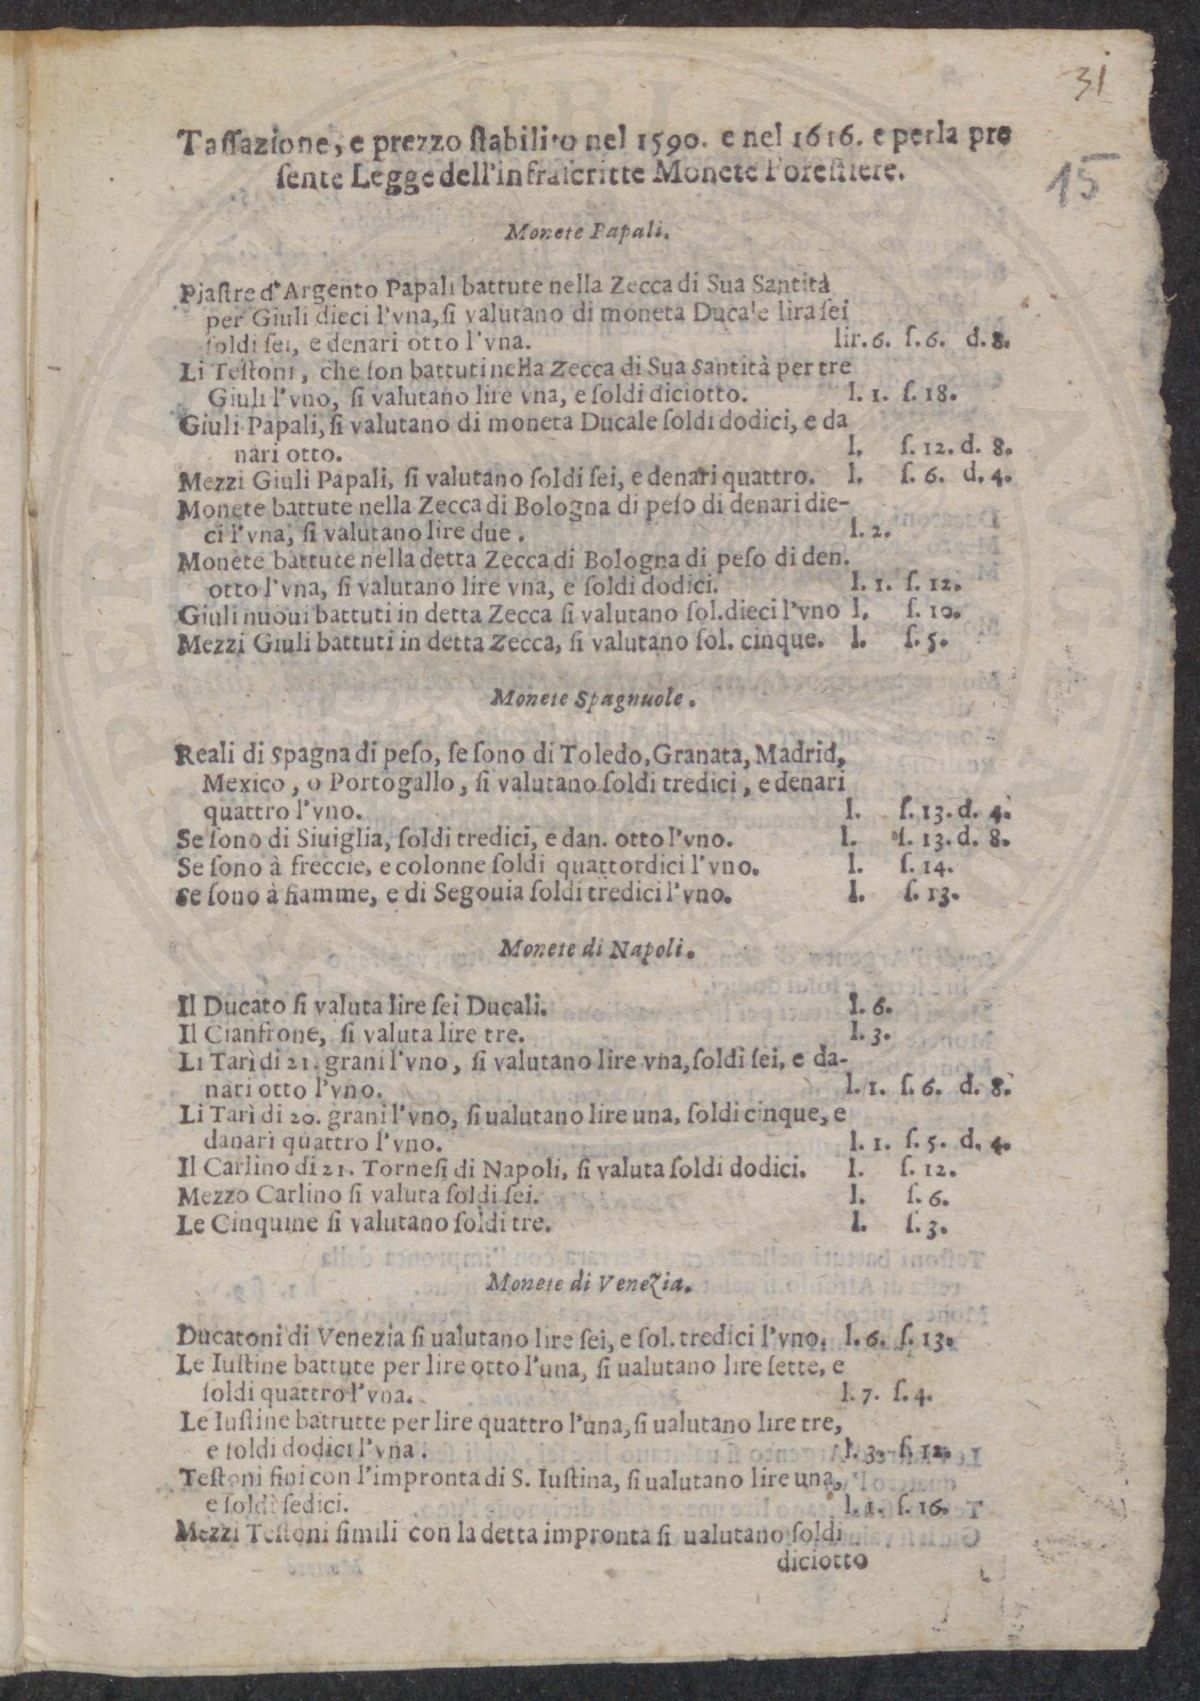 31
15
Taſſazione, e prezzo ſtabilito nel 1590. e nel 1616. e perla pre
ſente Legge dell'infraſcritte Monete Foreſtiere.
Monete Papali.
Piaſtre d'Argento Papali battute nella Zecca di Sua Santità
per Giuli dieci l'vna, ſi valutano di moneta Ducale lira ſei
ſoldi ſei, e denari otto l'vna. lir. 6. ſ. 6. d. 8.
Li Teſtoni, che ſon battuti nella Zecca di Sua Santità per tre
Giuli l'vno, ſi valutano lire vna, e ſoldi diciotto. l. 1. ſ. 18.
Giuli Papali, ſi valutano di moneta Ducale ſoldi dodici, e da
nari otto. l. ſ. 12. d. 8.
Mezzi Giuli Papali, ſi valutano ſoldi ſei, e denari quattro. l. ſ. 6. d. 4.
Monete battute nella Zecca di Bologna di peſo di denari die-
ci l'vna, ſi valutano lire due. l. 2.
Monete battute nella detta Zecca di Bologna di peſo di den.
otto l'vna, ſi valutano lire vna, e ſoldi dodici. l. 1. ſ. 12.
Giuli nuoui battuti in detta Zecca ſi valutano ſol. dieci l'vno l. ſ. 10.
Mezzi Giuli battuti in detta Zecca, ſi valutano ſol. cinque. l. ſ. 5.
Monete Spagnuole.
Reali di Spagna di peſo, ſe ſono di Toledo, Granata, Madrid,
Mexico, o Portogallo, ſi valutano ſoldi tredici, e denari
quattro l'vno. l. ſ. 13. d. 4.
Se ſono di Siuiglia, ſoldi tredici, e dan. otto l'vno. l. ſ. 13. d. 8.
Se ſono à freccie, e colonne ſoldi quattordici l'vno. l. ſ. 14.
Se ſono à fiamme, e di Segouia ſoldi tredici l'vno. l. ſ. 13.
Monete di Napoli.
Il Ducato ſi valuta lire ſei Ducali. l. 6.
Il Cianfrone, ſi valuta lire tre. l. 3.
Li Tarì di 21. grani l'vno, ſi valutano lire vna, ſoldi ſei, e da-
nari otto l'vno. l. 1. ſ. 6. d. 8.
Li Tarì di 20. grani l'vno, ſi ualutano lire una, ſoldi cinque, e
danari quattro l'vno. l. 1. ſ. 5. d. 4.
Il Carlino di 21. Torneſi di Napoli, ſi valuta ſoldi dodici. l. ſ. 12.
Mezzo Carlino ſi valuta ſoldi ſei. l. ſ. 6.
Le Cinquine ſi valutano ſoldi tre. l. ſ. 3.
Monete di Venezia.
Ducatoni di Venezia ſi ualutano lire ſei, e ſol. tredici l'vno. l. 6. ſ. 13.
Le Iuſtine battute per lire otto l'una, ſi ualutano lire ſette, e
ſoldi quattro l'vna. l. 7. ſ. 4.
Le Iuſtine battutte per lire quattro l'una, ſi ualutano lire tre,
e ſoldi dodici l'vna. l. 3. ſ. 12.
Teſtoni fini con l'impronta di S. Iuſtina, ſi ualutano lire una,
e ſoldi ſedici. l. 1. ſ. 16.
Mezzi Teſtoni ſimili con la detta impronta ſi ualutano ſoldi
diciotto